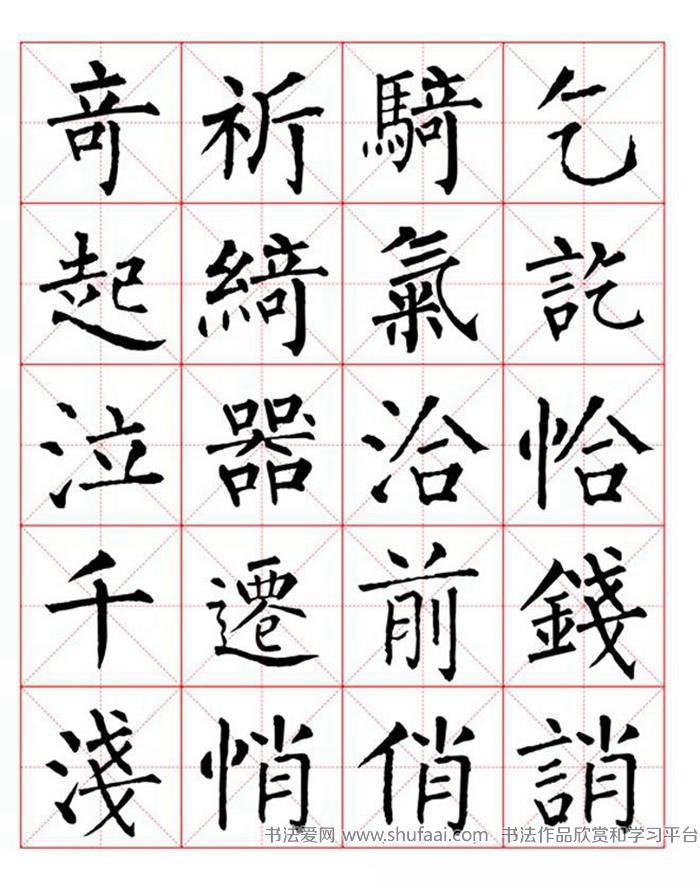 奇祈騎乞
起綺氣訖
泣器洽恰
千遷前錢
淺悄俏誚
书法爱网 www.shufaai.com 书法作品欣赏和学习平台